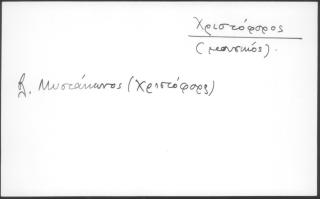 Χριστόφορος
(μουσικός).
Β. Μυστάκωνος (Χριστόφορος)